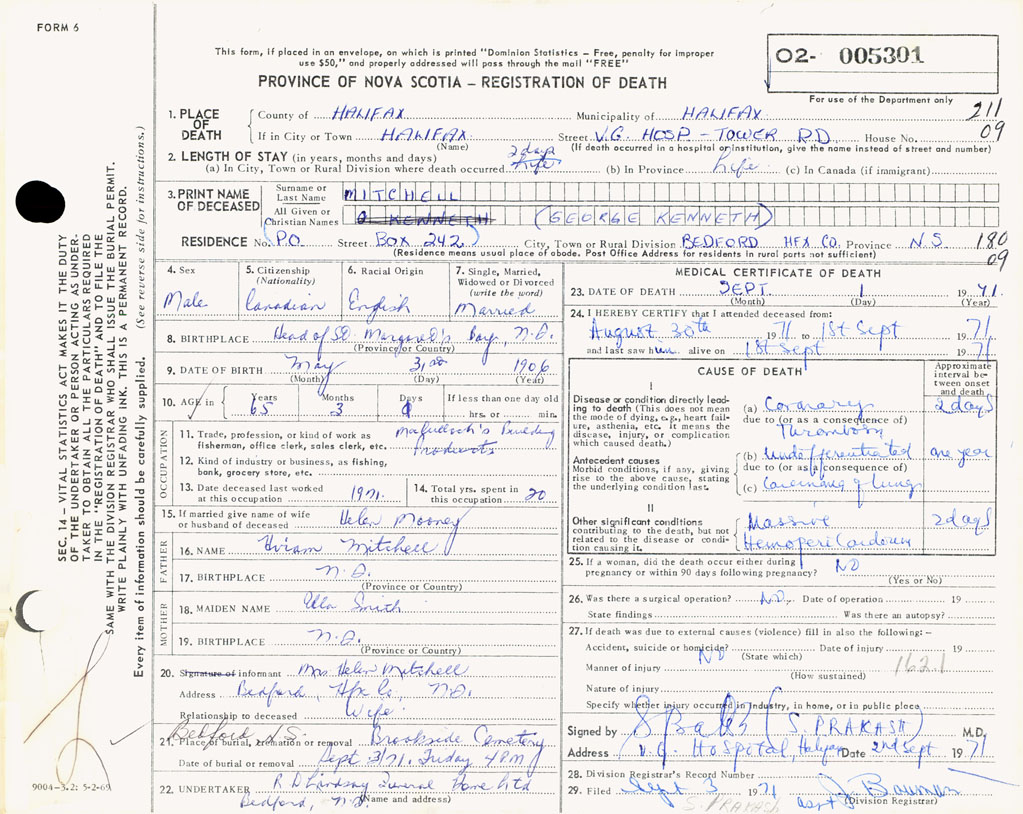 FORM 6
This form, if placed in an envelope, on which is printed "Dominion Statistics – Free, penalty for improper
use $50," and properly addressed will pass through the mail "FREE"
PROVINCE OF NOVA SCOTIA – REGISTRATION OF DEATH
02- 005301
For use of the Department only
1. PLACE OF DEATH County of HALIFAX Municipality of HALIFAX 211
If in City or Town HALIFAX Street V.G. HOSP – TOWER RD. House No. 09
(Name) (If death occurred in a hospital or institution, give the name instead of street and number)
2. LENGTH OF STAY (in years, months and days) 2 days
(a) In City, Town or Rural Division where death occurred Life (b) In Province Life (c) In Canada (if immigrant)
3. PRINT NAME OF DECEASED Surname or Last Name MITCHELL
All Given or Christian Names KENNETH (GEORGE KENNETH)
RESIDENCE No. P.O. Street BOX 242 City, Town or Rural Division BEDFORD HFX CO. Province N.S. 180
(Residence means usual place of abode. Post Office Address for residents in rural parts not sufficient) 09
4. Sex Male
5. Citizenship (Nationality) Canadian
6. Racial Origin English
7. Single, Married, Widowed or Divorced (write the word) Married
8. BIRTHPLACE Head of St. Margaret's Bay, N.S.
(Province or Country)
9. DATE OF BIRTH May 31st 1906
(Month) (Day) (Year)
10. AGE in Years Months Days If less than one day old
65 3 hrs. or min.
OCCUPATION
11. Trade, profession, or kind of work as fisherman, office clerk, sales clerk, etc. Building
12. Kind of industry or business, as fishing, bank, grocery store, etc. Products
13. Date deceased last worked at this occupation 1971.
14. Total yrs. spent in this occupation 20
15. If married give name of wife or husband of deceased Helen Mooney
FATHER
16. NAME Hiram Mitchell
17. BIRTHPLACE N.S.
(Province or Country)
MOTHER
18. MAIDEN NAME Ella Smith
19. BIRTHPLACE N.S.
(Province or Country)
20. Signature of informant Mrs Helen Mitchell
Address Bedford, Hfx Co, N.S.
Relationship to deceased Wife
Bedford N.S.
21. Place of burial, cremation or removal Brookside Cemetery
Date of burial or removal Sept 3/71. Friday 4 PM
22. UNDERTAKER R D Lindsay Funeral Home Ltd
Bedford, N.S. (Name and address)
MEDICAL CERTIFICATE OF DEATH
23. DATE OF DEATH SEPT. 1 1971.
(Month) (Day) (Year)
24. I HEREBY CERTIFY that I attended deceased from:
August 30th 1971 to 1st Sept 1971
and last saw him alive on 1st Sept 1971
CAUSE OF DEATH
Approximate interval between onset and death
I
Disease or condition directly leading to death (This does not mean the mode of dying, e.g., heart failure, asthenia, etc. it means the disease, injury, or complication which caused death.)
(a) Coronary 2 days
due to (or as a consequence of)
Thrombosis
Antecedent causes
Morbid conditions, if any, giving rise to the above cause, stating the underlying condition last.
(b) Undifferentiated one year
due to (or as a consequence of)
(c) Carcinoma of lung
II
Other significant conditions
contributing to the death, but not related to the disease or condition causing it.
Massive 2 days
Hemopericardium
25. If a woman, did the death occur either during pregnancy or within 90 days following pregnancy? NO
(Yes or No)
26. Was there a surgical operation? NO. Date of operation 19
State findings Was there an autopsy?
27. If death was due to external causes (violence) fill in also the following: –
Accident, suicide or homicide? NO Date of injury 19
(State which)
Manner of injury 162.1
(How sustained)
Nature of injury
Specify whether injury occurred in industry, in home, or in public place
Signed by (S. PRAKASH) M.D.
Address V.G. Hospital, Halifax Date 2nd Sept 1971
28. Division Registrar's Record Number
29. Filed Sept 3 1971 J. Bauman
S. PRAKASH asst (Division Registrar)
SEC. 14 – VITAL STATISTICS ACT MAKES IT THE DUTY
OF THE UNDERTAKER OR PERSON ACTING AS UNDER-
TAKER TO OBTAIN ALL THE PARTICULARS REQUIRED
IN THE "REGISTRATION OF DEATH" AND TO FILE THE
SAME WITH THE DIVISION REGISTRAR WHO SHALL ISSUE THE BURIAL PERMIT.
WRITE PLAINLY WITH UNFADING INK. THIS IS A PERMANENT RECORD.
Every item of information should be carefully supplied. (See reverse side for instructions.)
9004-3.2: 5-2-69